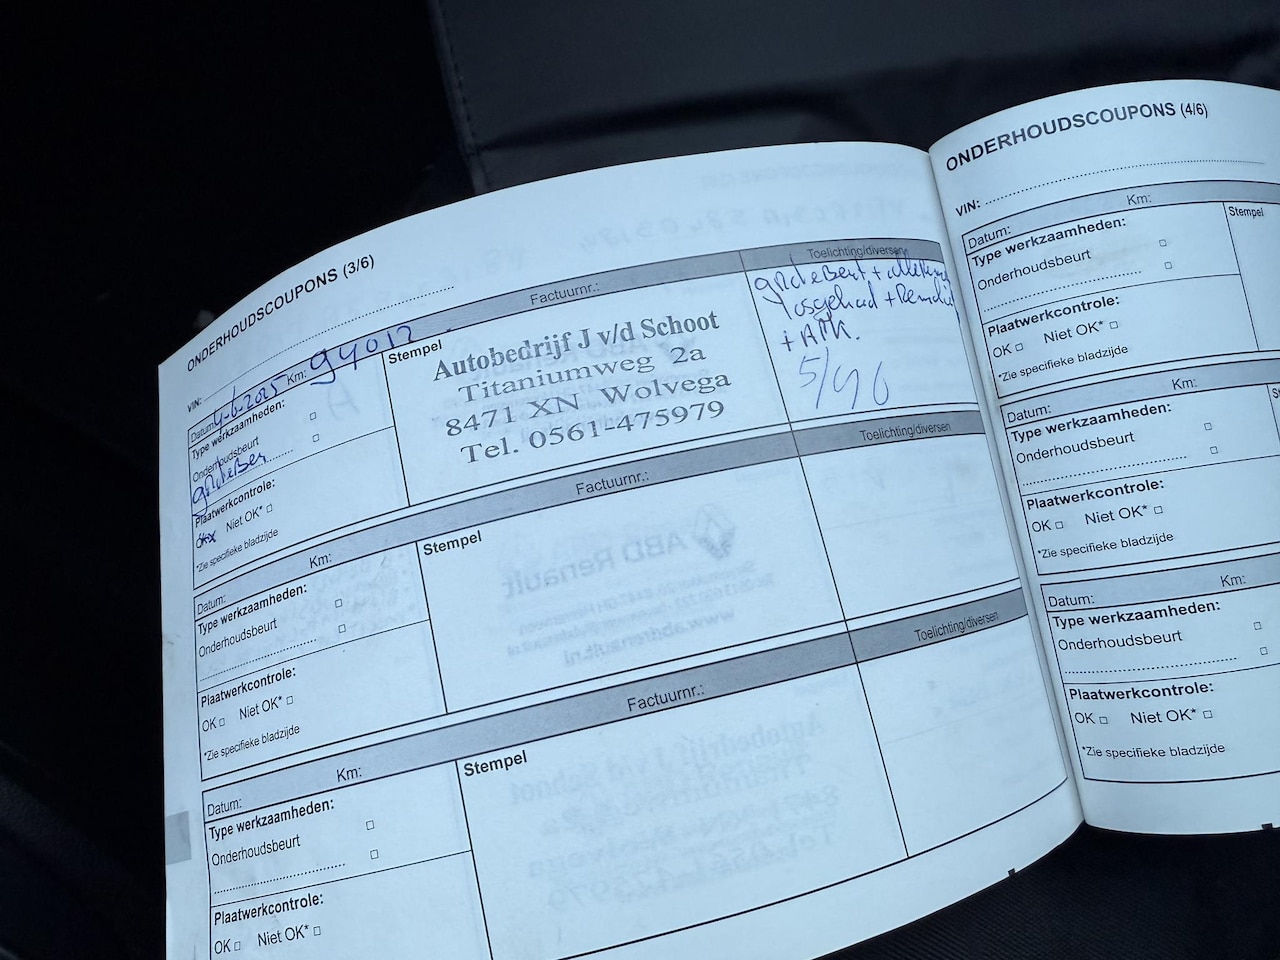 ONDERHOUDSCOUPONS (3/6)
VIN:
Datum: 4-6-2025 Km: 94012 Factuurnr.: Toelichting/diversen
Type werkzaamheden:
Onderhoudsbeurt
Plaatwerkcontrole:
OK Niet OK*
*Zie specifieke bladzijde
Stempel
Autobedrijf J v/d Schoot
Titaniumweg 2a
8471 XN Wolvega
Tel. 0561-475979
+
+
+ APK.
Datum: Km: Factuurnr.: Toelichting/diversen
Type werkzaamheden:
Onderhoudsbeurt
Plaatwerkcontrole:
OK Niet OK*
*Zie specifieke bladzijde
Stempel
Datum: Km: Factuurnr.: Toelichting/diversen
Type werkzaamheden:
Onderhoudsbeurt
Plaatwerkcontrole:
OK Niet OK*
Stempel
ONDERHOUDSCOUPONS (4/6)
VIN:
Datum: Km:
Type werkzaamheden:
Onderhoudsbeurt
Plaatwerkcontrole:
OK Niet OK*
*Zie specifieke bladzijde
Stempel
Datum: Km:
Type werkzaamheden:
Onderhoudsbeurt
Plaatwerkcontrole:
OK Niet OK*
*Zie specifieke bladzijde
Datum: Km:
Type werkzaamheden:
Onderhoudsbeurt
Plaatwerkcontrole:
OK Niet OK*
*Zie specifieke bladzijde